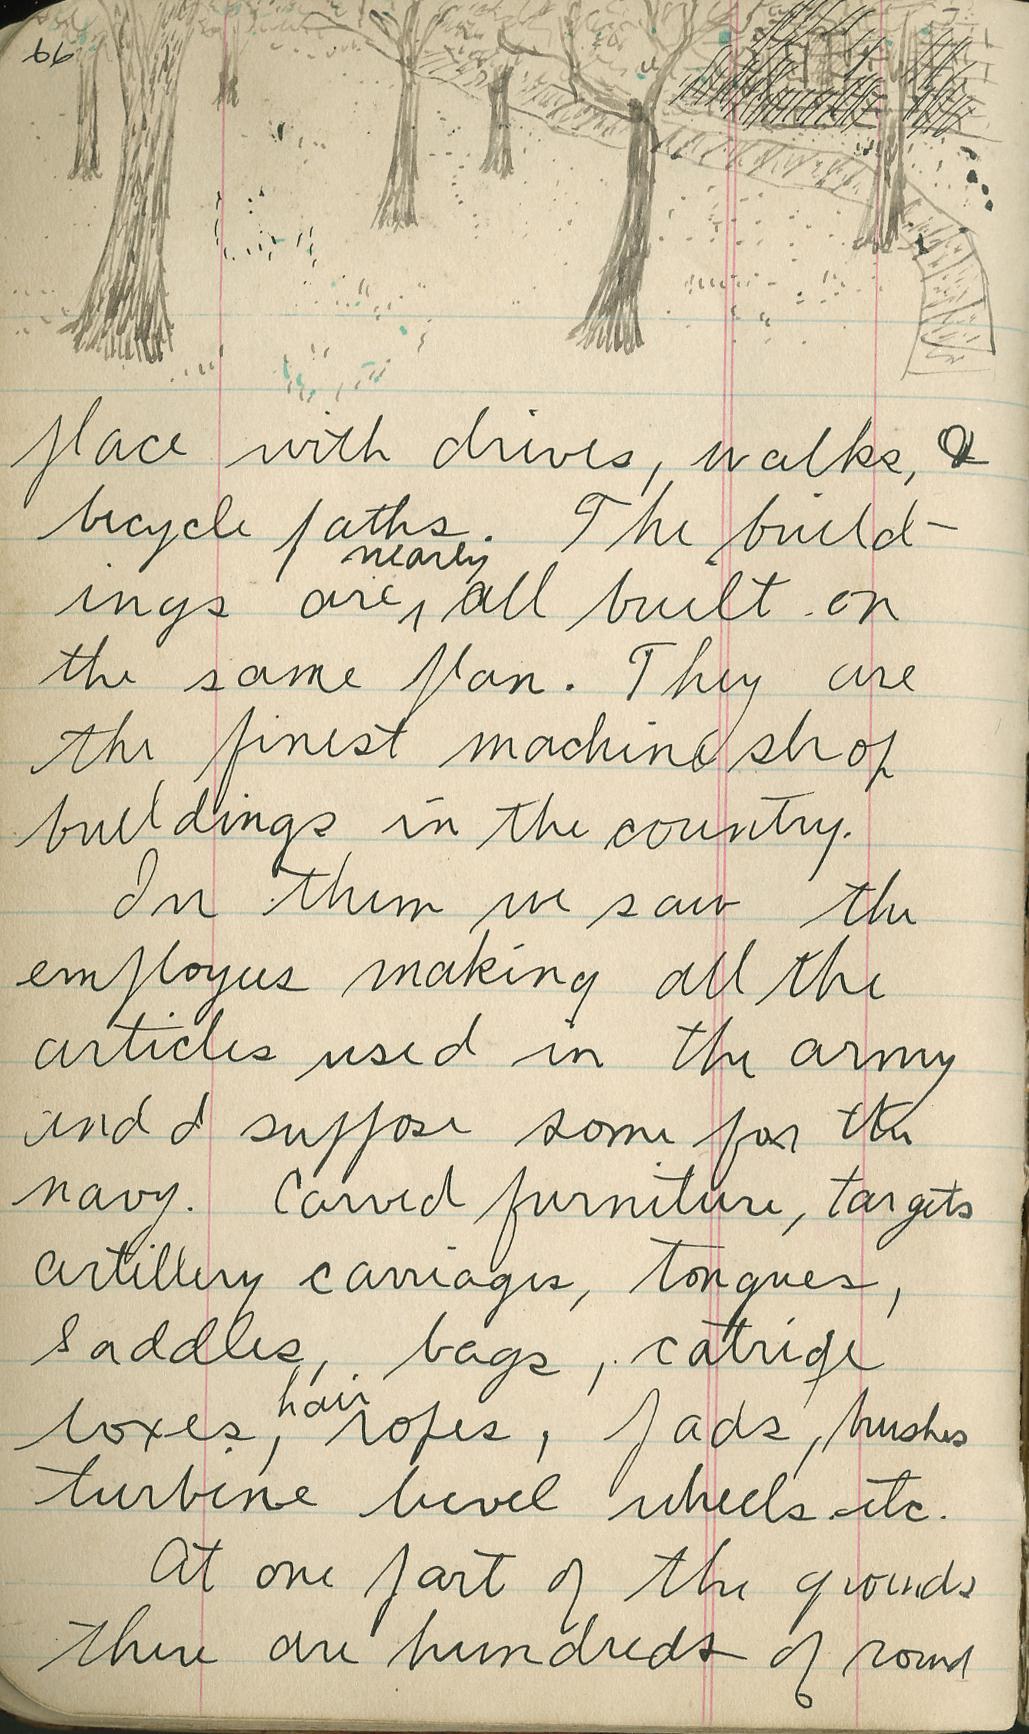 66
place with drives, walks, &
bicycle paths. The build-
nearly
ings are, all built on
the same plan. They are
the finest machine shop
buildings in the country.
In them we saw the
employees making all the
articles used in the army
and I suppose some for the
navy. Carved furniture, targets
artillery carriages, tongues,
Saddles, bags, catrige
hair
boxes, ropes, pads, brushes
turbine bevel wheels etc.
At one part of the grounds
there are hundreds of round